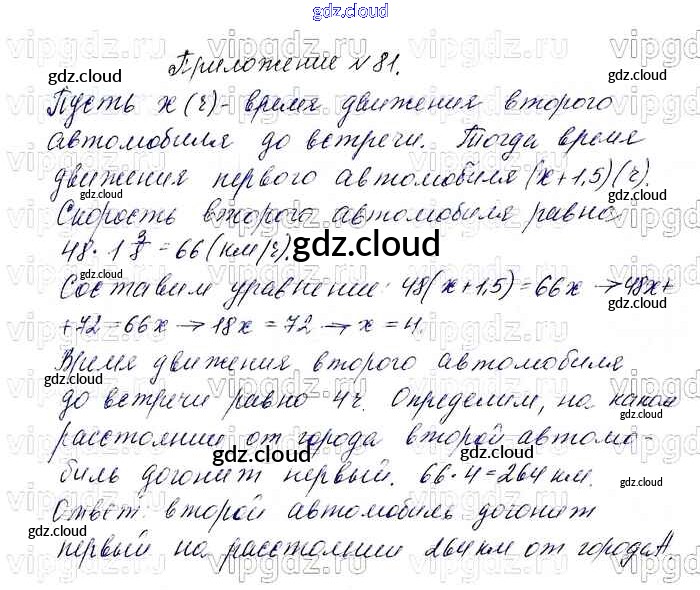 gdz.cloud
Приложение № 81.
Пусть x (ч) - время движения второго
автомобиля до встречи. Тогда время
движения первого автомобиля (x+1,5)(ч).
Скорость второго автомобиля равна
48 · 1 3/8 = 66 (км/ч).
Составим уравнение: 48(x+1,5) = 66x → 48x +
+72 = 66x → 18x = 72 → x = 4.
Время движения второго автомобиля
до встречи равно 4ч. Определим, на каком
расстоянии от города второй автомо-
биль догонит первый. 66·4=264 км.
Ответ: второй автомобиль догонит
первый на расстоянии 264 км от города А